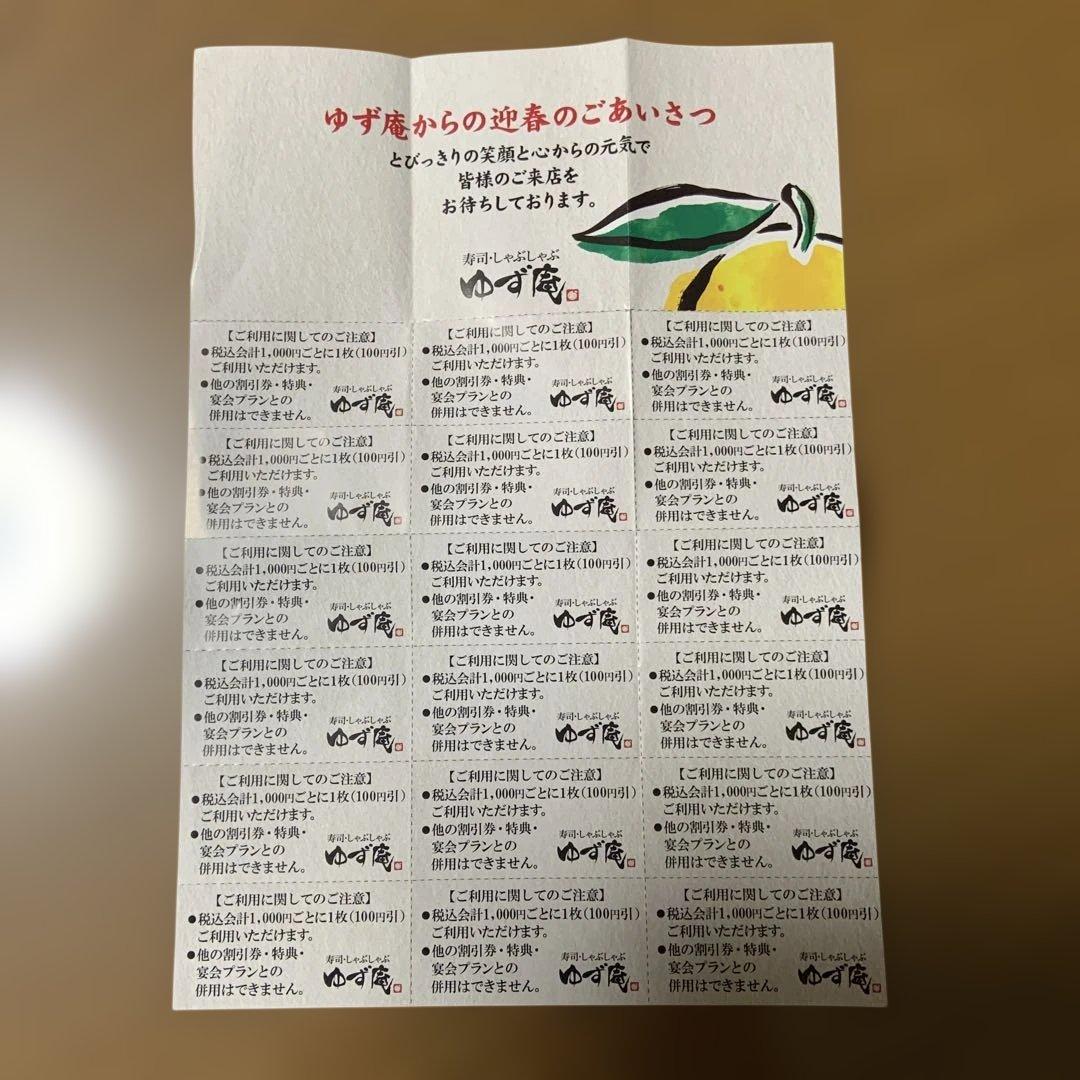 ゆず庵からの迎春のごあいさつ
とびっきりの笑顔と心からの元気で
皆様のご来店を
お待ちしております。
寿司・しゃぶしゃぶ
ゆず庵
【ご利用に関してのご注意】
●税込会計1,000円ごとに1枚(100円引)
ご利用いただけます。
●他の割引券・特典・
宴会プランとの
併用はできません。
寿司・しゃぶしゃぶ
ゆず庵
【ご利用に関してのご注意】
●税込会計1,000円ごとに1枚(100円引)
ご利用いただけます。
●他の割引券・特典・
宴会プランとの
併用はできません。
寿司・しゃぶしゃぶ
ゆず庵
【ご利用に関してのご注意】
●税込会計1,000円ごとに1枚(100円引)
ご利用いただけます。
●他の割引券・特典・
宴会プランとの
併用はできません。
寿司・しゃぶしゃぶ
ゆず庵
【ご利用に関してのご注意】
●税込会計1,000円ごとに1枚(100円引)
ご利用いただけます。
●他の割引券・特典・
宴会プランとの
併用はできません。
寿司・しゃぶしゃぶ
ゆず庵
【ご利用に関してのご注意】
●税込会計1,000円ごとに1枚(100円引)
ご利用いただけます。
●他の割引券・特典・
宴会プランとの
併用はできません。
寿司・しゃぶしゃぶ
ゆず庵
【ご利用に関してのご注意】
●税込会計1,000円ごとに1枚(100円引)
ご利用いただけます。
●他の割引券・特典・
宴会プランとの
併用はできません。
寿司・しゃぶしゃぶ
ゆず庵
【ご利用に関してのご注意】
●税込会計1,000円ごとに1枚(100円引)
ご利用いただけます。
●他の割引券・特典・
宴会プランとの
併用はできません。
寿司・しゃぶしゃぶ
ゆず庵
【ご利用に関してのご注意】
●税込会計1,000円ごとに1枚(100円引)
ご利用いただけます。
●他の割引券・特典・
宴会プランとの
併用はできません。
寿司・しゃぶしゃぶ
ゆず庵
【ご利用に関してのご注意】
●税込会計1,000円ごとに1枚(100円引)
ご利用いただけます。
●他の割引券・特典・
宴会プランとの
併用はできません。
寿司・しゃぶしゃぶ
ゆず庵
【ご利用に関してのご注意】
●税込会計1,000円ごとに1枚(100円引)
ご利用いただけます。
●他の割引券・特典・
宴会プランとの
併用はできません。
寿司・しゃぶしゃぶ
ゆず庵
【ご利用に関してのご注意】
●税込会計1,000円ごとに1枚(100円引)
ご利用いただけます。
●他の割引券・特典・
宴会プランとの
併用はできません。
寿司・しゃぶしゃぶ
ゆず庵
【ご利用に関してのご注意】
●税込会計1,000円ごとに1枚(100円引)
ご利用いただけます。
●他の割引券・特典・
宴会プランとの
併用はできません。
寿司・しゃぶしゃぶ
ゆず庵
【ご利用に関してのご注意】
●税込会計1,000円ごとに1枚(100円引)
ご利用いただけます。
●他の割引券・特典・
宴会プランとの
併用はできません。
寿司・しゃぶしゃぶ
ゆず庵
【ご利用に関してのご注意】
●税込会計1,000円ごとに1枚(100円引)
ご利用いただけます。
●他の割引券・特典・
宴会プランとの
併用はできません。
寿司・しゃぶしゃぶ
ゆず庵
【ご利用に関してのご注意】
●税込会計1,000円ごとに1枚(100円引)
ご利用いただけます。
●他の割引券・特典・
宴会プランとの
併用はできません。
寿司・しゃぶしゃぶ
ゆず庵
【ご利用に関してのご注意】
●税込会計1,000円ごとに1枚(100円引)
ご利用いただけます。
●他の割引券・特典・
宴会プランとの
併用はできません。
寿司・しゃぶしゃぶ
ゆず庵
【ご利用に関してのご注意】
●税込会計1,000円ごとに1枚(100円引)
ご利用いただけます。
●他の割引券・特典・
宴会プランとの
併用はできません。
寿司・しゃぶしゃぶ
ゆず庵
【ご利用に関してのご注意】
●税込会計1,000円ごとに1枚(100円引)
ご利用いただけます。
●他の割引券・特典・
宴会プランとの
併用はできません。
寿司・しゃぶしゃぶ
ゆず庵